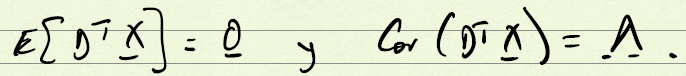 E[Dᵀ X̲] = 0̲ y Cov (Dᵀ X̲) = Λ̲ .